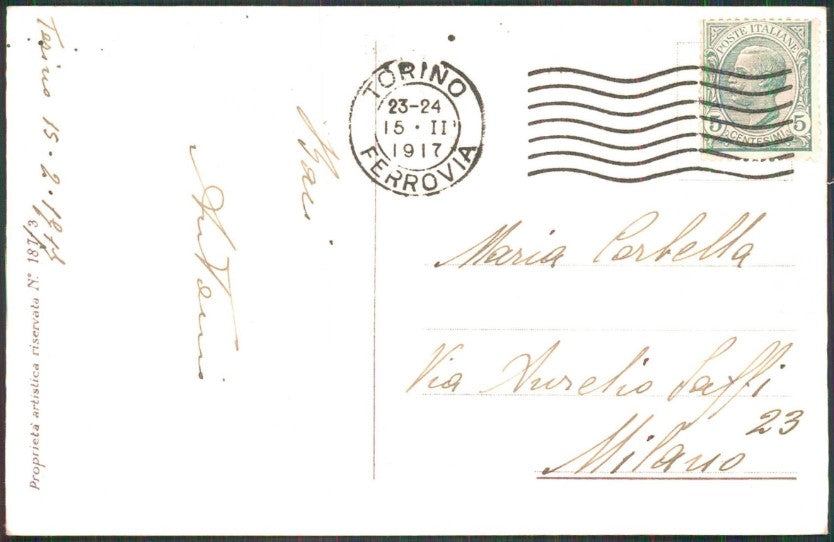 Torino 15.2.1917
Baci
Antonio
Proprietà artistica riservata N° 187/3
TORINO
23-24
15 · II
1917
FERROVIA
POSTE ITALIANE
5 5
CENTESIMI
Maria Corbella
Via Aurelio Saffi
23
Milano